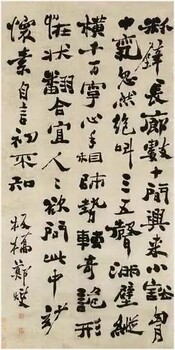 粉壁長廊數十間興來小豁胸
中氣忽然絕叫三五聲滿壁縱
橫千百字心手相師勢轉奇詭形
怪狀翻合宜人人欲問此中妙
懷素自言初不知 板橋鄭燮